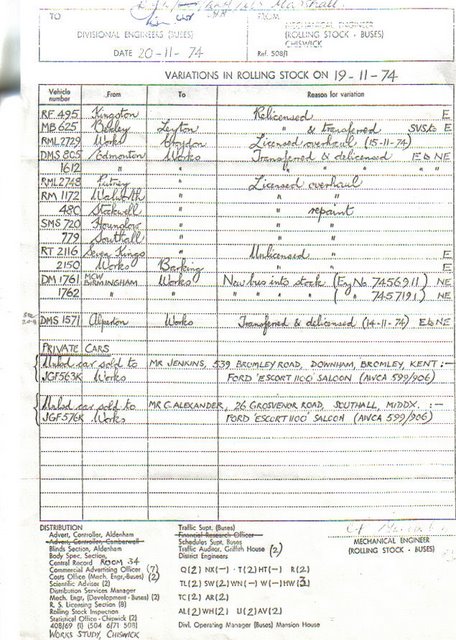 TO
DIVISIONAL ENGINEERS (BUSES)
DATE 20-11-74
FROM
MECHANICAL ENGINEER
(ROLLING STOCK - BUSES)
CHISWICK
Ref. 508/1
VARIATIONS IN ROLLING STOCK ON 19-11-74
Vehicle number From To Reason for variation
RF 495 Kingston Relicensed E
MB 625 Bexley Leyton " & transferred SVSto E
RML2729 Works Croydon Licensed overhaul (15-11-74)
DMS 805 Edmonton Works Transferred & delicensed E to NE
1612 " " " " " "
RML2748 Putney " Licensed overhaul
RM 1172 Walworth " " "
480 Stockwell " " repaint
SMS 720 Hounslow " " "
779 Southall " " "
RT 2116 Seven Kings " Unlicensed E
2150 Works Barking " E
DM 1761 MCW BIRMINGHAM Works New bus into stock (Eng No 7456911) NE
1762 " " " " " " ( " 7457191) NE
DMS 1571 Alperton Works Transferred & delicensed (14-11-74) E to NE
PRIVATE CARS
car sold to MR JENKINS, 539 BROMLEY ROAD, DOWNHAM, BROMLEY, KENT :—
JGF563K Works FORD 'ESCORT 1100' SALOON (AVCA 599/906)
car sold to MR C. ALEXANDER, 26 GROSVENOR ROAD, SOUTHALL, MIDDX. :—
JGF576K Works FORD 'ESCORT 1100' SALOON (AVCA 599/906)
MECHANICAL ENGINEER
(ROLLING STOCK - BUSES)
DISTRIBUTION
Advert. Controller, Aldenham
Advert. Controller, Camberwell
Blinds Section, Aldenham
Body Spec. Section,
Central Record ROOM 34
Commercial Advertising Officer (7)
Costs Office (Mech. Engr.-Buses) (2)
Scientific Adviser (2)
Distribution Services Manager
Mech. Engr. (Development - Buses) (2)
R. S. Licensing Section (8)
Rolling Stock Inspection
Statistical Office - Chiswick (2)
408/69 (1) 504 6/71 508)
WORKS STUDY, CHISWICK
Traffic Supt. (Buses)
Financial Research Officer
Schedules Supt. Buses
Traffic Auditor, Griffith House (2)
District Engineers
Q(2) NX(—) T(2) HT(—) R(2)
TL(2) SW(2) WN(—) W(—) HW(3)
TC(2) AR(2)
AL(2) WH(2) U(2) AV(2)
Divl. Operating Manager (Buses) Mansion House